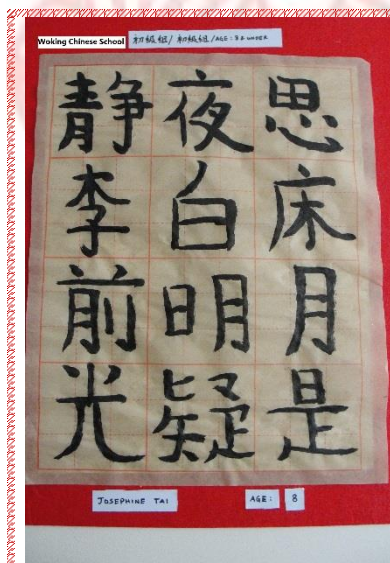 Woking Chinese School 初級組/ 初级组/AGE: 8 & UNDER
静夜思
李白床
前明月
光疑是
JOSEPHINE TAI AGE: 8